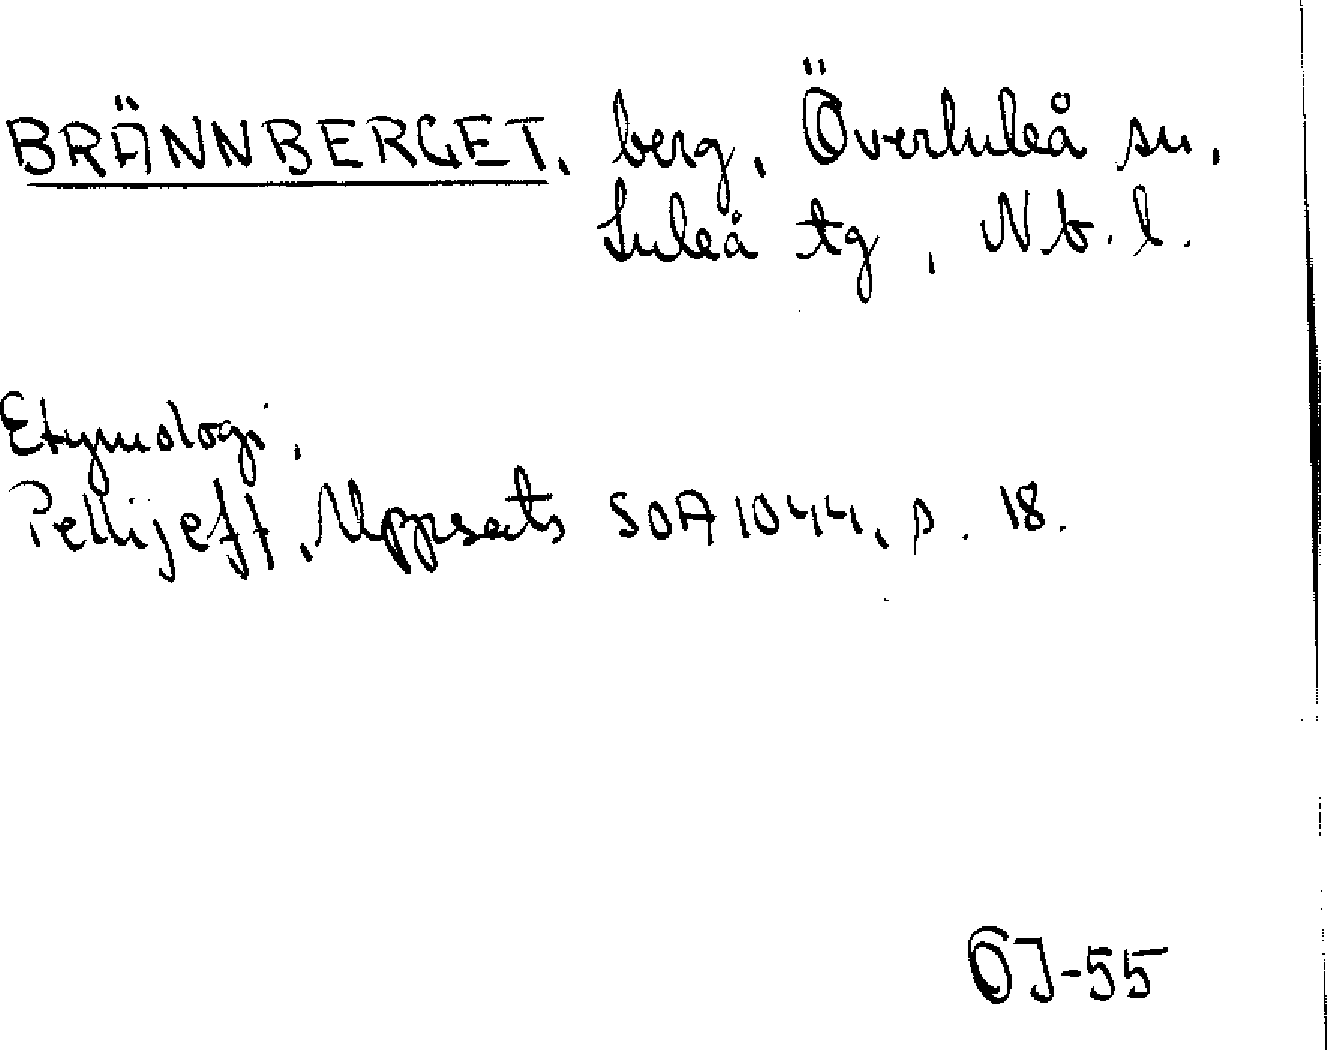 BRÄNNBERGET, berg, Överluleå sn,
Luleå tg, Nb. l.
Etymologi,
Pellijeff, Uppsats SOA 1044, s. 18.
OJ-55